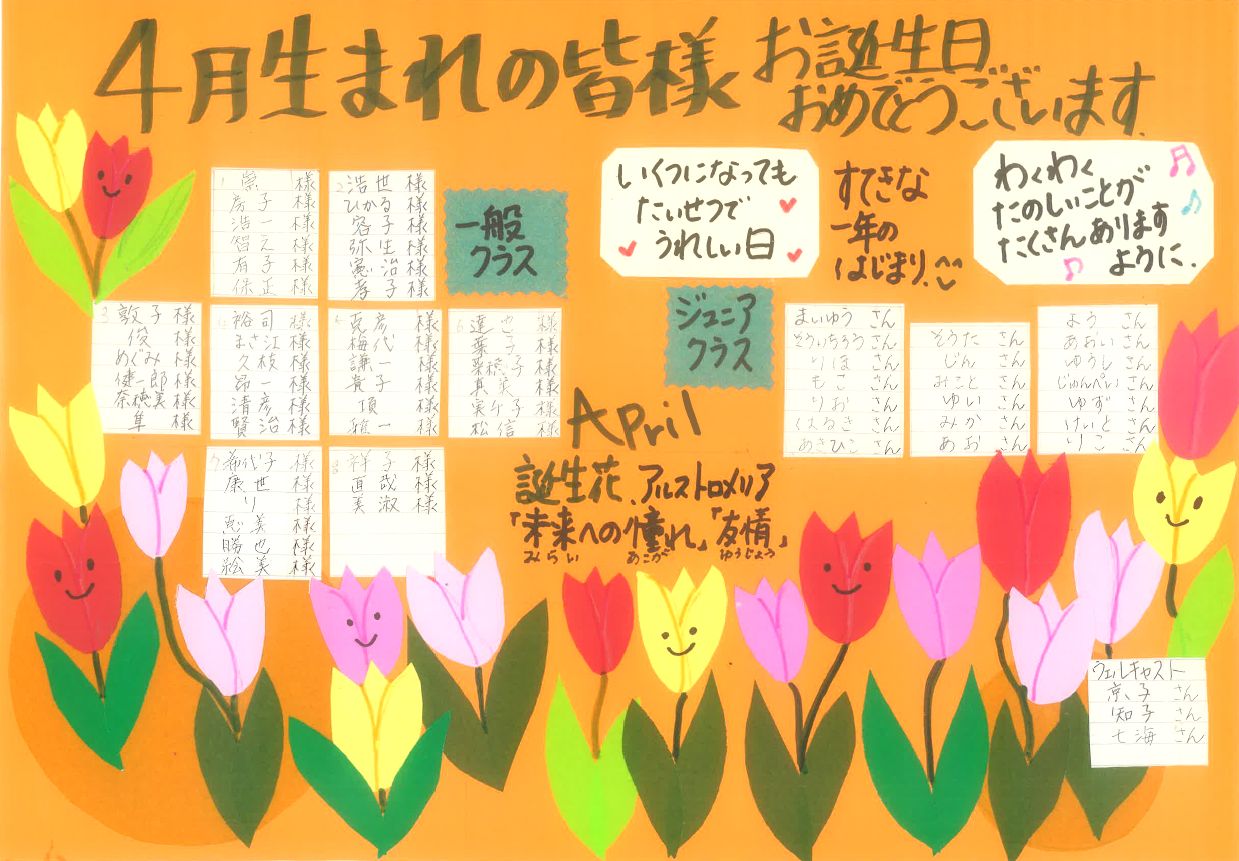 4月生まれの皆様
お誕生日
おめでとうございます
いくつになっても
たいせつで
うれしい日
すてきな
一年の
はじまり。
わくわく
たのしいことが
たくさんあります
ように.
一般
クラス
1. 崇 様
房子 様
浩一 様
智え 様
有子 様
保正 様
2. 浩世 様
ひかる 様
容子 様
弥生 様
憲治 様
孝子 様
3. 敦子 様
俊 様
めぐみ 様
健二郎 様
奈穂美 様
隼 様
4. 裕司 様
まさ江 様
久枝 様
昂一 様
清彦 様
賢治 様
梅代 様
謙一 様
貴子 様
頂 様
6. 達也 様
葉子 様
真美 様
松信 様
7. 希代子 様
康世 様
り 様
恵美 様
勝也 様
絵美 様
8. 祥子 様
直哉 様
美淑 様
ジュニア
クラス
まいゆう さん
そういちろう さん
りほ さん
もこ さん
りお さん
はるき さん
あさひこ さん
そうた さん
じん さん
みこと さん
ゆい さん
みか さん
あお さん
よう さん
あおい さん
ゆうし さん
じゅんぺい さん
ゆず さん
けいと さん
りこ さん
April
誕生花、アルストロメリア
「未来への憧れ」「友情」
みらい あこが ゆうじょう
ウェルキャスト
京子 さん
知子 さん
七海 さん